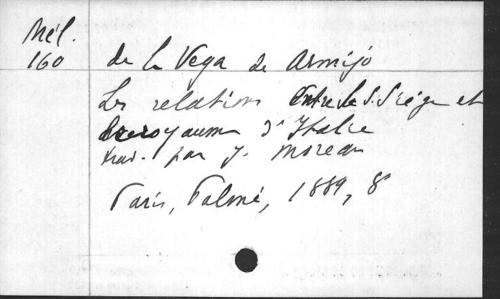 Mél.
160
de la Vega de Armijo
Les relations entre le S. Siège et
le royaume d'Italie
trad. par J. Moreau
Paris, Palmé, 1889, 8